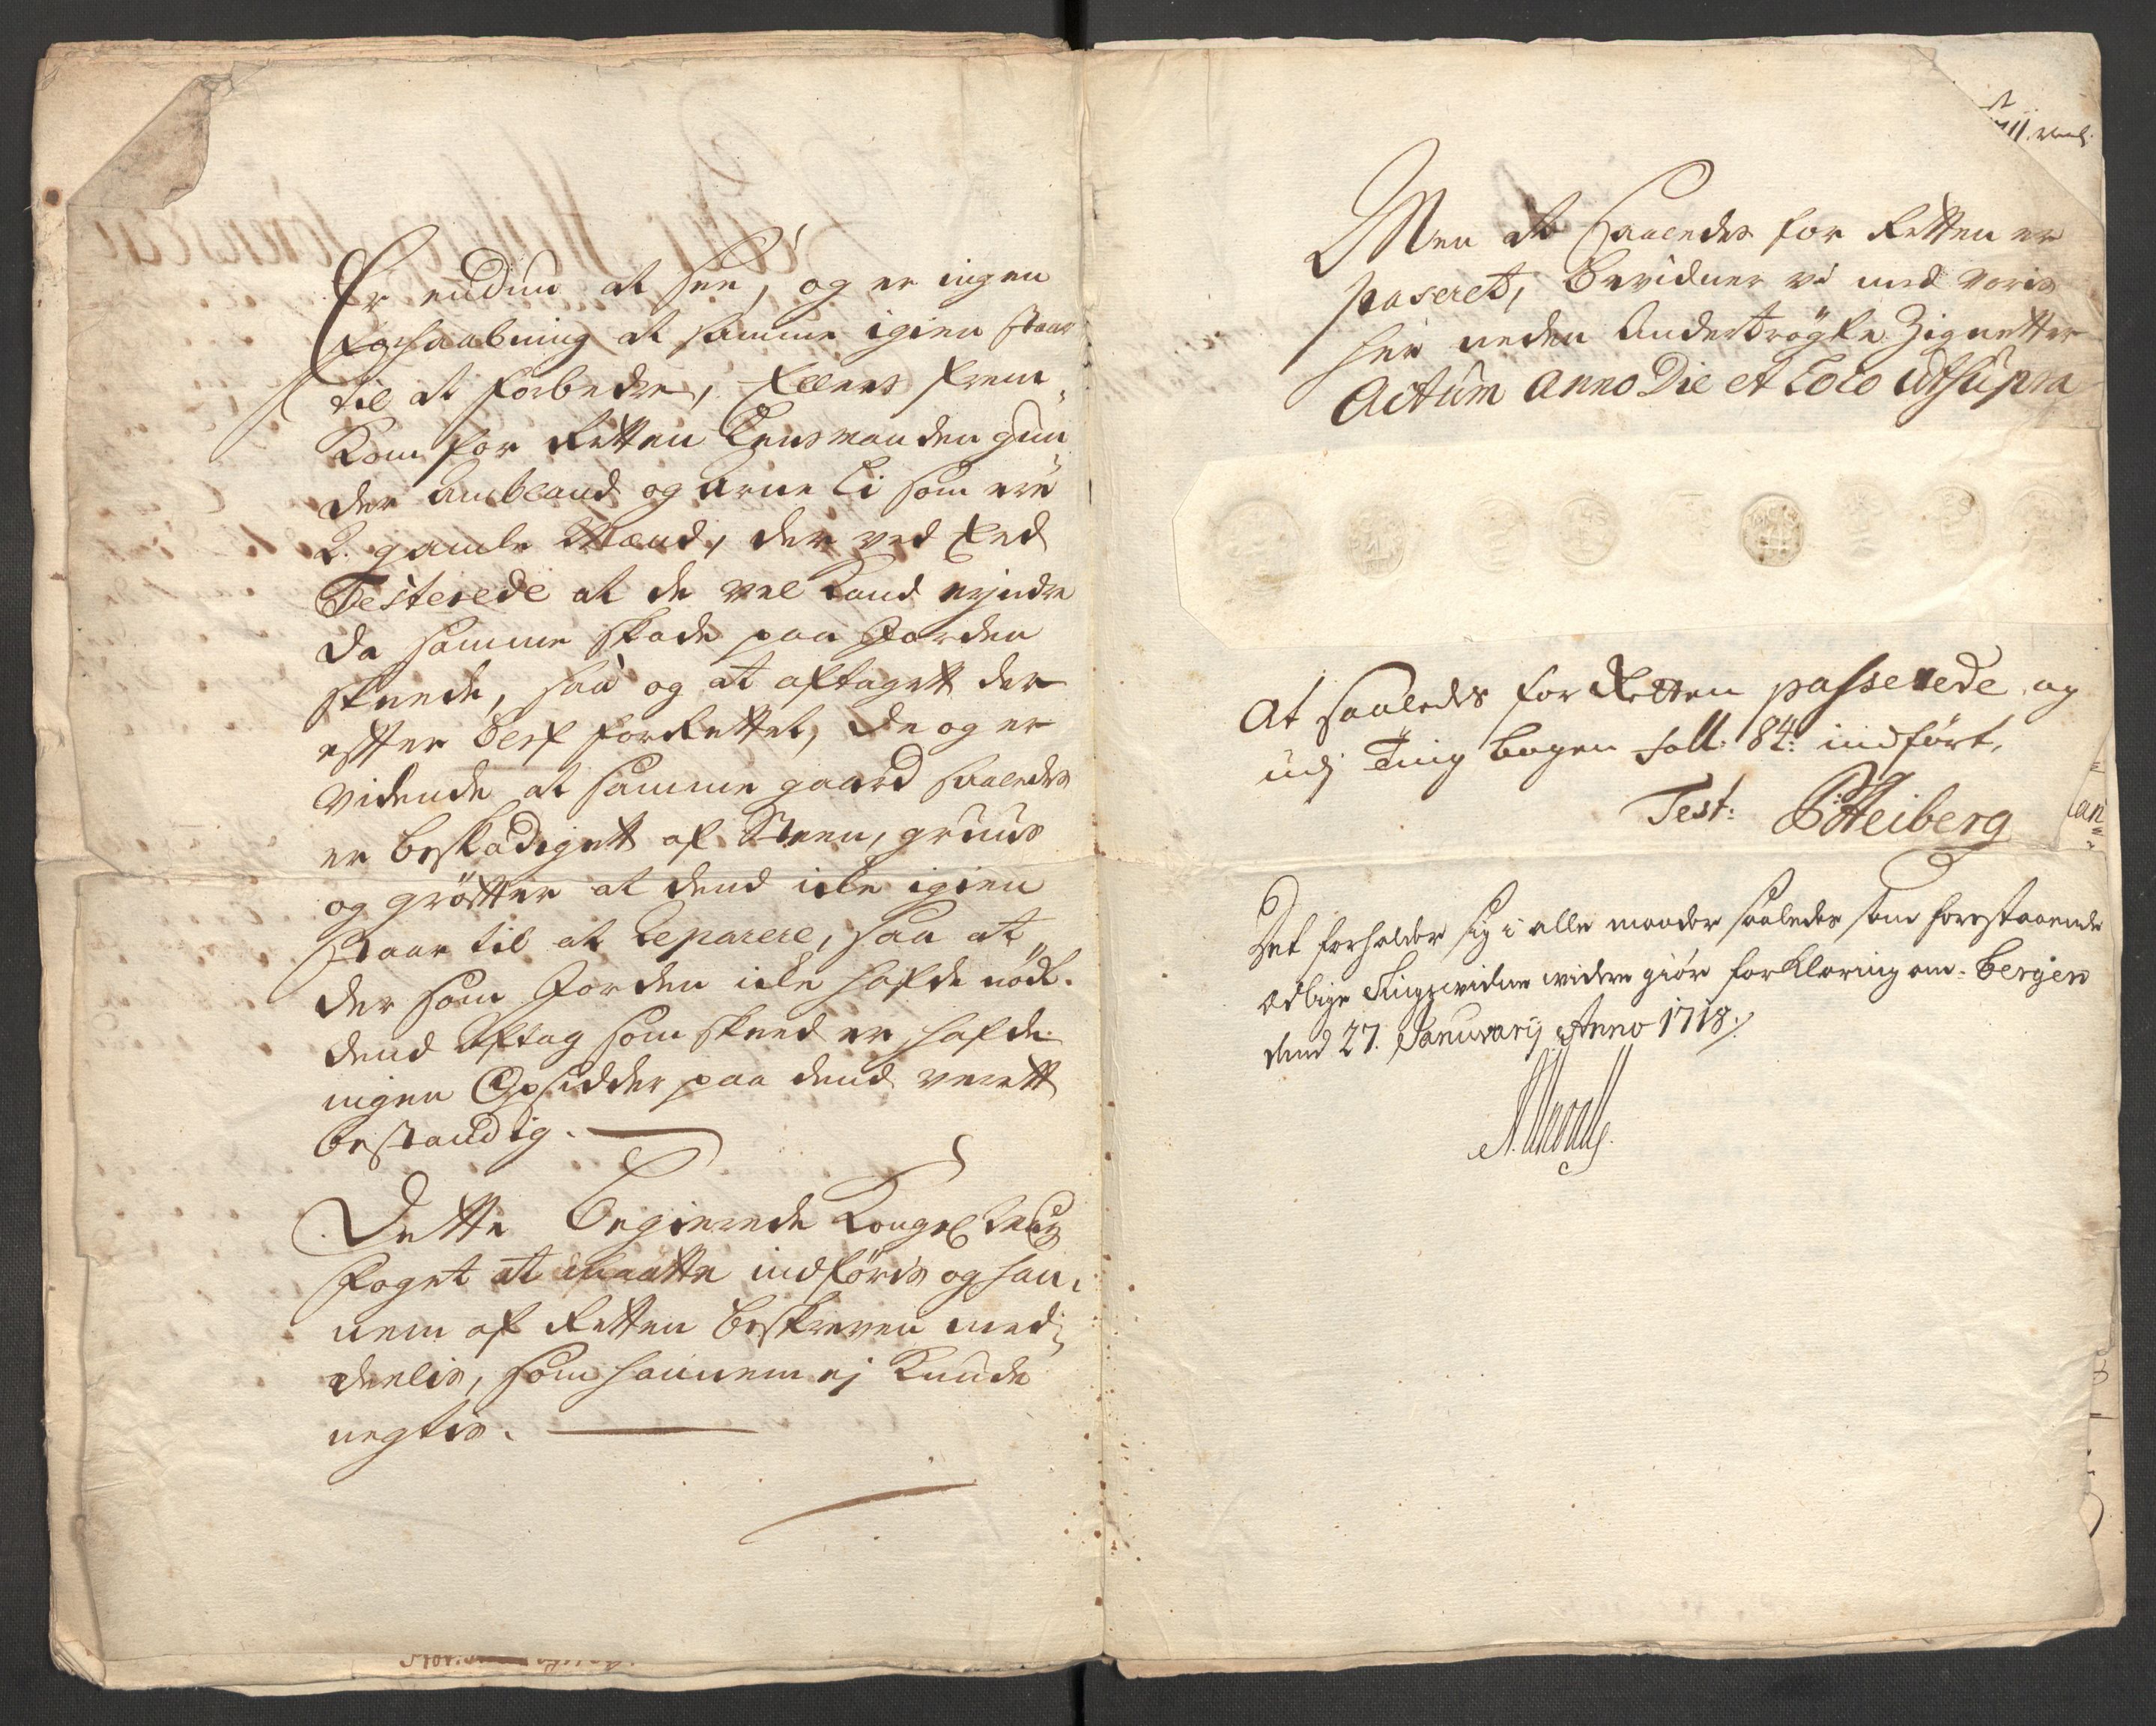 Er endnu at see, og er ingen
forhaabning at samme igien staar
til at forbedre, Ellers frem„
Kom for Retten Lensmanden Gun„
der Ambland og Arne Li som ere
2. gamle Mænd, der ved Eed
Testerede at de vel Kand erindre
da samme skade paa Jorden
skeede, saa og at aftaget der
efter blef forRettet, de og er
vidende at samme gaard saaledes
er beskadiget af Steen, gruus
og grøtter at dend icke igien
staar til at Reparere, saa at
der som Jorden icke hafde nødt
dend Aftag som skeed er hafde
ingen Opsidder paa dend verett
bestandig.
Dette Begierede Kongel
foget at maatte indføris og han„
nem af Retten beskreven med„
deelis, som hannem ej Kunde
negtis.
Men at Saaledes for Retten er
paseret, bevidner vi med voris
her neden Undertrøgte Zignetter
Actum Anno Die et Loco Utsupra
At saaledes for Retten passerede og
udj Ting bogen foll: 84: indført,
Test: Heiberg
Det forholder sig i alle maader saaledes som forestaaende
Tingsvidne videre giør forKlaring om. Bergen
dend 27. Januarij Anno 1718.